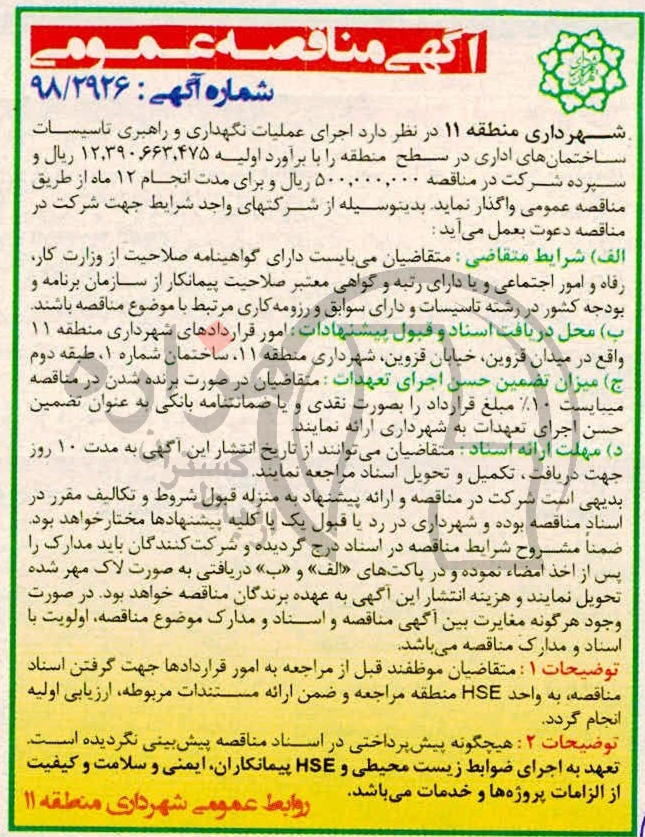 آگهی مناقصه عمومی
شماره آگهی : ۹۸/۲۹۲۶
شهرداری منطقه ۱۱ در نظر دارد اجرای عملیات نگهداری و راهبری تاسیسات
ساختمان‌های اداری در سطح منطقه را با برآورد اولیه ۱۲,۳۹۰,۶۶۳,۴۷۵ ریال و
سپرده شرکت در مناقصه ۵۰۰,۰۰۰,۰۰۰ ریال و برای مدت انجام ۱۲ ماه از طریق
مناقصه عمومی واگذار نماید. بدینوسیله از شرکتهای واجد شرایط جهت شرکت در
مناقصه دعوت بعمل می‌آید :
الف) شرایط متقاضی : متقاضیان می‌بایست دارای گواهینامه صلاحیت از وزارت کار،
رفاه و امور اجتماعی و یا دارای رتبه و گواهی معتبر صلاحیت پیمانکار از سازمان برنامه و
بودجه کشور در رشته تاسیسات و دارای سوابق و رزومه کاری مرتبط با موضوع مناقصه باشند.
ب) محل دریافت اسناد و قبول پیشنهادات : امور قراردادهای شهرداری منطقه ۱۱
واقع در میدان قزوین، خیابان قزوین، شهرداری منطقه ۱۱، ساختمان شماره ۱، طبقه دوم
ج) میزان تضمین حسن اجرای تعهدات : متقاضیان در صورت برنده شدن در مناقصه
میبایست ۱۰٪ مبلغ قرارداد را بصورت نقدی و یا ضمانتنامه بانکی به عنوان تضمین
حسن اجرای تعهدات به شهرداری ارائه نمایند.
د) مهلت ارائه اسناد : متقاضیان می‌توانند از تاریخ انتشار این آگهی به مدت ۱۰ روز
جهت دریافت، تکمیل و تحویل اسناد مراجعه نمایند.
بدیهی است شرکت در مناقصه و ارائه پیشنهاد به منزله قبول شروط و تکالیف مقرر در
اسناد مناقصه بوده و شهرداری در رد یا قبول یک یا کلیه پیشنهادها مختار خواهد بود.
ضمناً مشروح شرایط مناقصه در اسناد درج گردیده و شرکت‌کنندگان باید مدارک را
پس از اخذ امضاء نموده و در پاکت‌های «الف» و «ب» دریافتی به صورت لاک مهر شده
تحویل نمایند و هزینه انتشار این آگهی به عهده برندگان مناقصه خواهد بود. در صورت
وجود هرگونه مغایرت بین آگهی مناقصه و اسناد و مدارک موضوع مناقصه، اولویت با
اسناد و مدارک مناقصه می‌باشد.
توضیحات ۱ : متقاضیان موظفند قبل از مراجعه به امور قراردادها جهت گرفتن اسناد
مناقصه، به واحد HSE منطقه مراجعه و ضمن ارائه مستندات مربوطه، ارزیابی اولیه
انجام گردد.
توضیحات ۲ : هیچگونه پیش‌پرداختی در اسناد مناقصه پیش‌بینی نگردیده است.
تعهد به اجرای ضوابط زیست محیطی و HSE پیمانکاران، ایمنی و سلامت و کیفیت
از الزامات پروژه‌ها و خدمات می‌باشد.
روابط عمومی شهرداری منطقه ۱۱